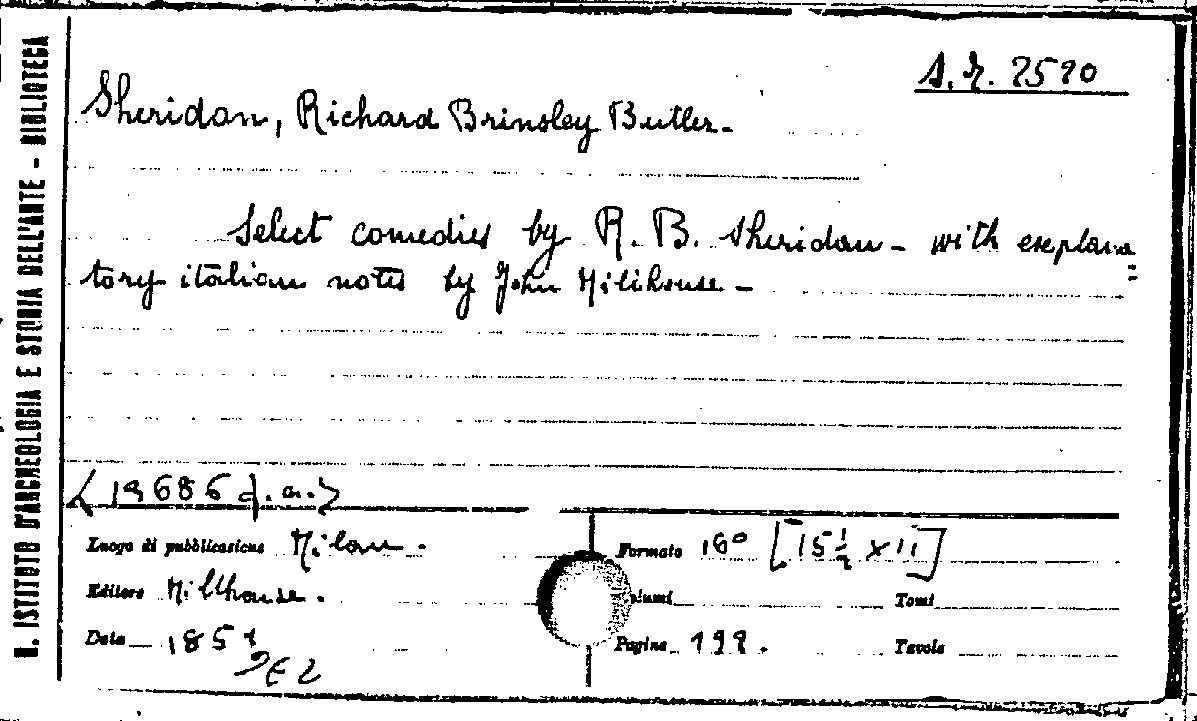 R. ISTITUTO D'ARCHEOLOGIA E STORIA DELL'ARTE - BIBLIOTECA
Sheridan, Richard Brinsley Butler.
Select comedies by R. B. Sheridan - with explana
tory italian notes by John Millhouse -
<19686 d.a.>
Luogo di pubblicazione Milan.
Editore Millhouse.
Data 185
Formato 16° [15 1/2 x 11]
Volumi Tomi
Pagine 199. Tavole